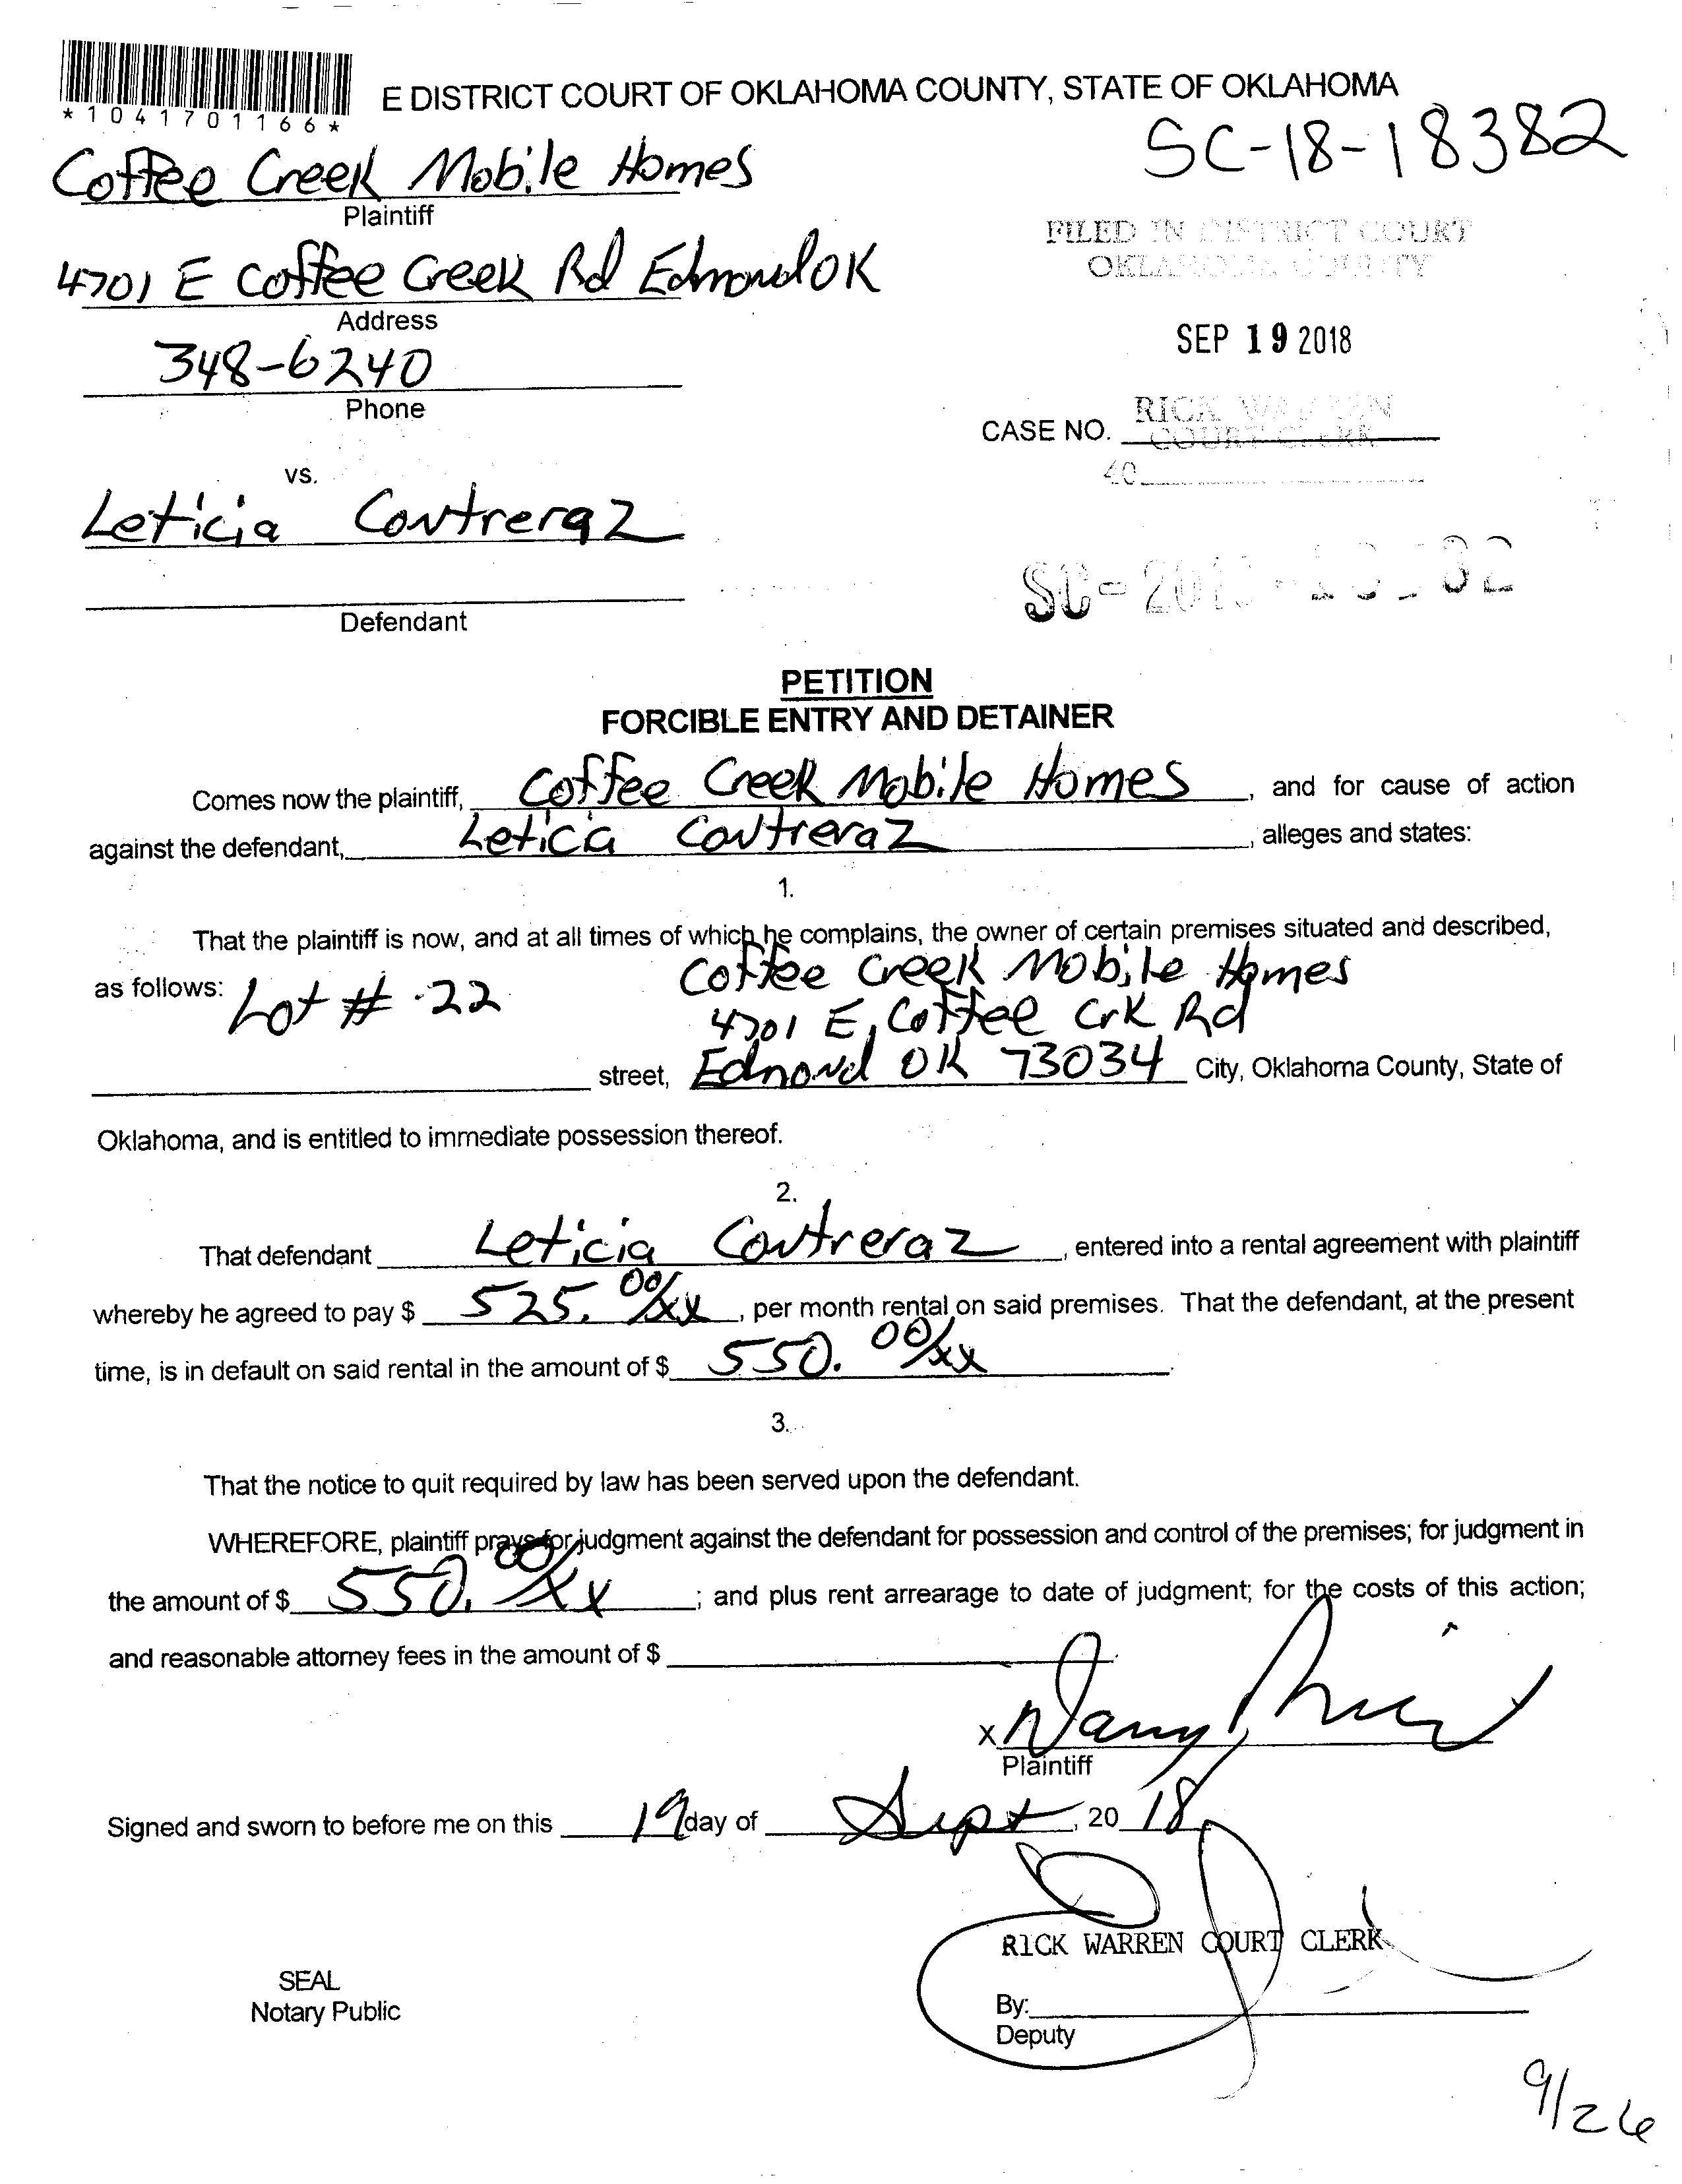 *1041701166*
E DISTRICT COURT OF OKLAHOMA COUNTY, STATE OF OKLAHOMA
SC-18-18382
Coffee Creek Mobile Homes
Plaintiff
FILED IN DISTRICT COURT
OKLAHOMA COUNTY
4701 E Coffee Creek Rd Edmond OK
Address
SEP 19 2018
348-6240
Phone
RICK WARREN
CASE NO. COURT CLERK
40
vs.
Leticia Contreraz
Defendant
PETITION
FORCIBLE ENTRY AND DETAINER
Comes now the plaintiff, Coffee Creek Mobile Homes, and for cause of action
against the defendant, Leticia Contreraz, alleges and states:
1.
That the plaintiff is now, and at all times of which he complains, the owner of certain premises situated and described,
Coffee Creek Mobile Homes
as follows: Lot # 22
4701 E, Coffee Crk Rd
street, Edmond OK 73034 City, Oklahoma County, State of
Oklahoma, and is entitled to immediate possession thereof.
2.
That defendant Leticia Contreraz, entered into a rental agreement with plaintiff
whereby he agreed to pay $ 525. 00/xx, per month rental on said premises. That the defendant, at the present
time, is in default on said rental in the amount of $ 550. 00/xx.
3.
That the notice to quit required by law has been served upon the defendant.
WHEREFORE, plaintiff prays for judgment against the defendant for possession and control of the premises; for judgment in
the amount of $ 550. 00/xx; and plus rent arrearage to date of judgment; for the costs of this action;
and reasonable attorney fees in the amount of $
x
Plaintiff
Signed and sworn to before me on this 19 day of Sept, 20 18
RICK WARREN COURT CLERK
SEAL
Notary Public
By:
Deputy
9/26